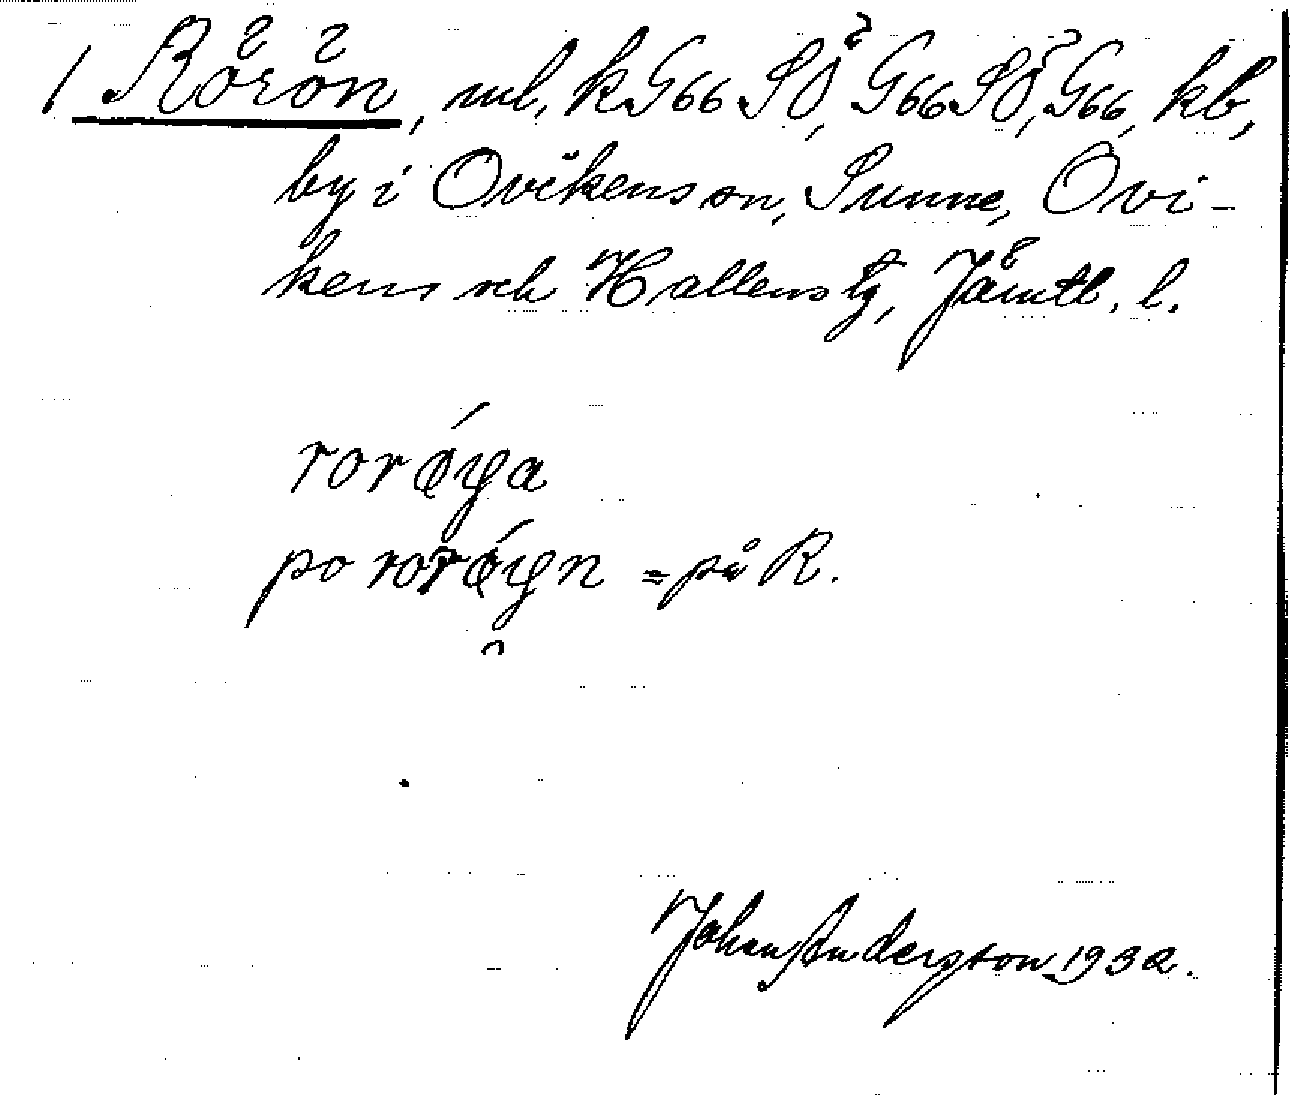 1 Rörön, ml, k G66 SÖ, G66 SÖ, G66, kb,
by i Ovikens sn, Sunne, Ovi-
kens och Hallens tg, Jämtl. l.
rorǿya
po rorǿyn = på R.
Johan Anderson 1932.